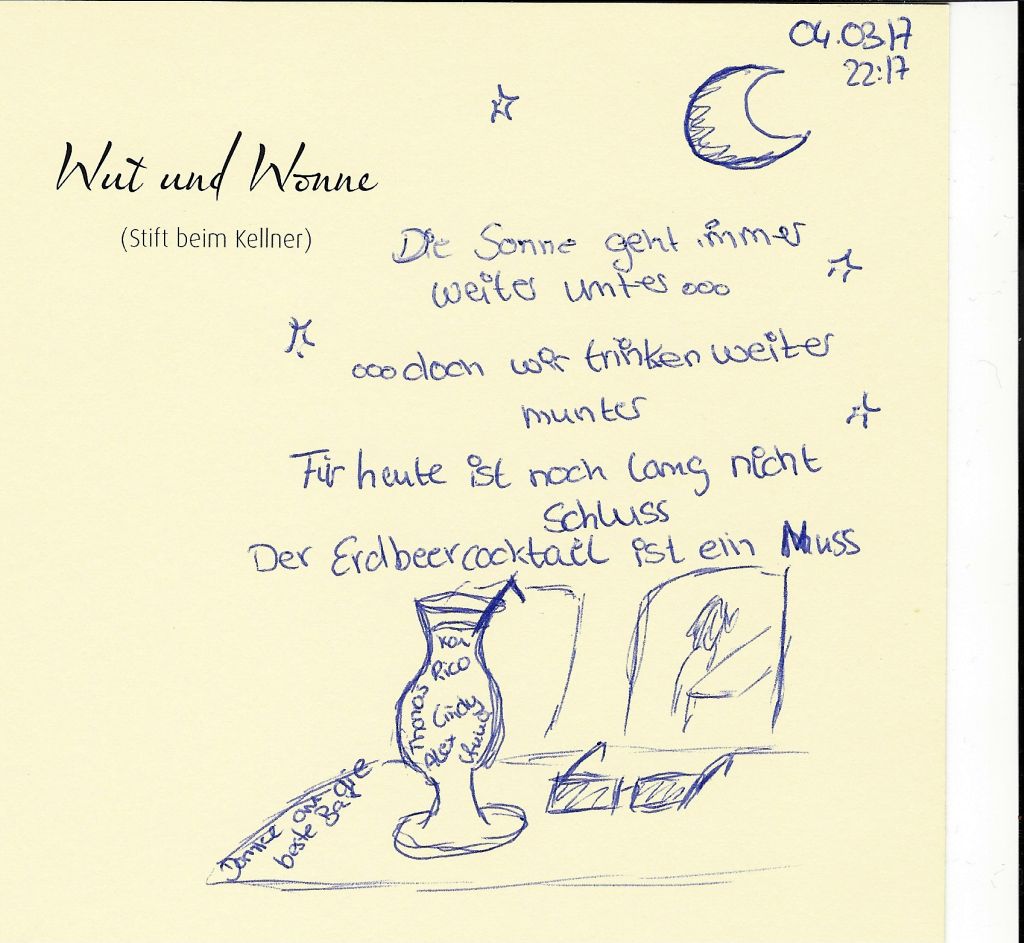 04.03.17
22:17
Wut und Wonne
(Stift beim Kellner)
Die Sonne geht immer
weiter unter...
...doch wir trinken weiter
munter
Für heute ist noch lang nicht
Schluss
Der Erdbeercocktail ist ein Muss
Kai
Rico
Thomas
Cindy
Alex
Danke an die
beste Bar